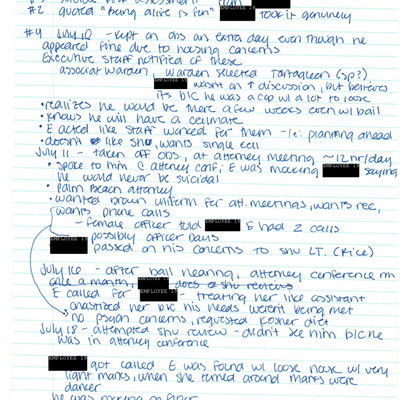 #2 quoted "Being alive is fun" EMPLOYEE 11 took it genuinely
#4 July 10 - kept on obs an extra day even though he
appeared fine due to housing concerns
Executive staff notified of these
associate warden, warden selected Tartaglione (sp?)
wasn't in ↑ discussion, but believes
its b/c he was a cop w/ a lot to lose
• realizes he would be there a few weeks even w/ bail
• knows he will have a cellmate
• E acted like staff worked for them - i.e: planning ahead
• doesn't like SHU, wants single cell
July 11 - taken off obs, at attorney meeting, ~12 hr/day
• spoke to him @ attorney conf; E was mocking saying
he would never be suicidal
• Palm Beach attorney
• wanted brown uniform for att. meetings, wants rec,
wants phone calls
- female officer told EMPLOYEE E had 2 calls
possibly officer Davis
passed on his concerns to SHU LT. (Rice)
July 16 - after bail hearing, attorney conference rm
does a SHU reviews
E called for - treating her like assistant
chastized her b/c his needs weren't being met
no psych concerns, requested kosher diet
July 18 - attempted SHU review - didn't see him b/c he
was in attorney conference
EMPLOYEE got called E was found w/ loose noose w/ very
light marks, when she turned around marks were
darker
he was on floor